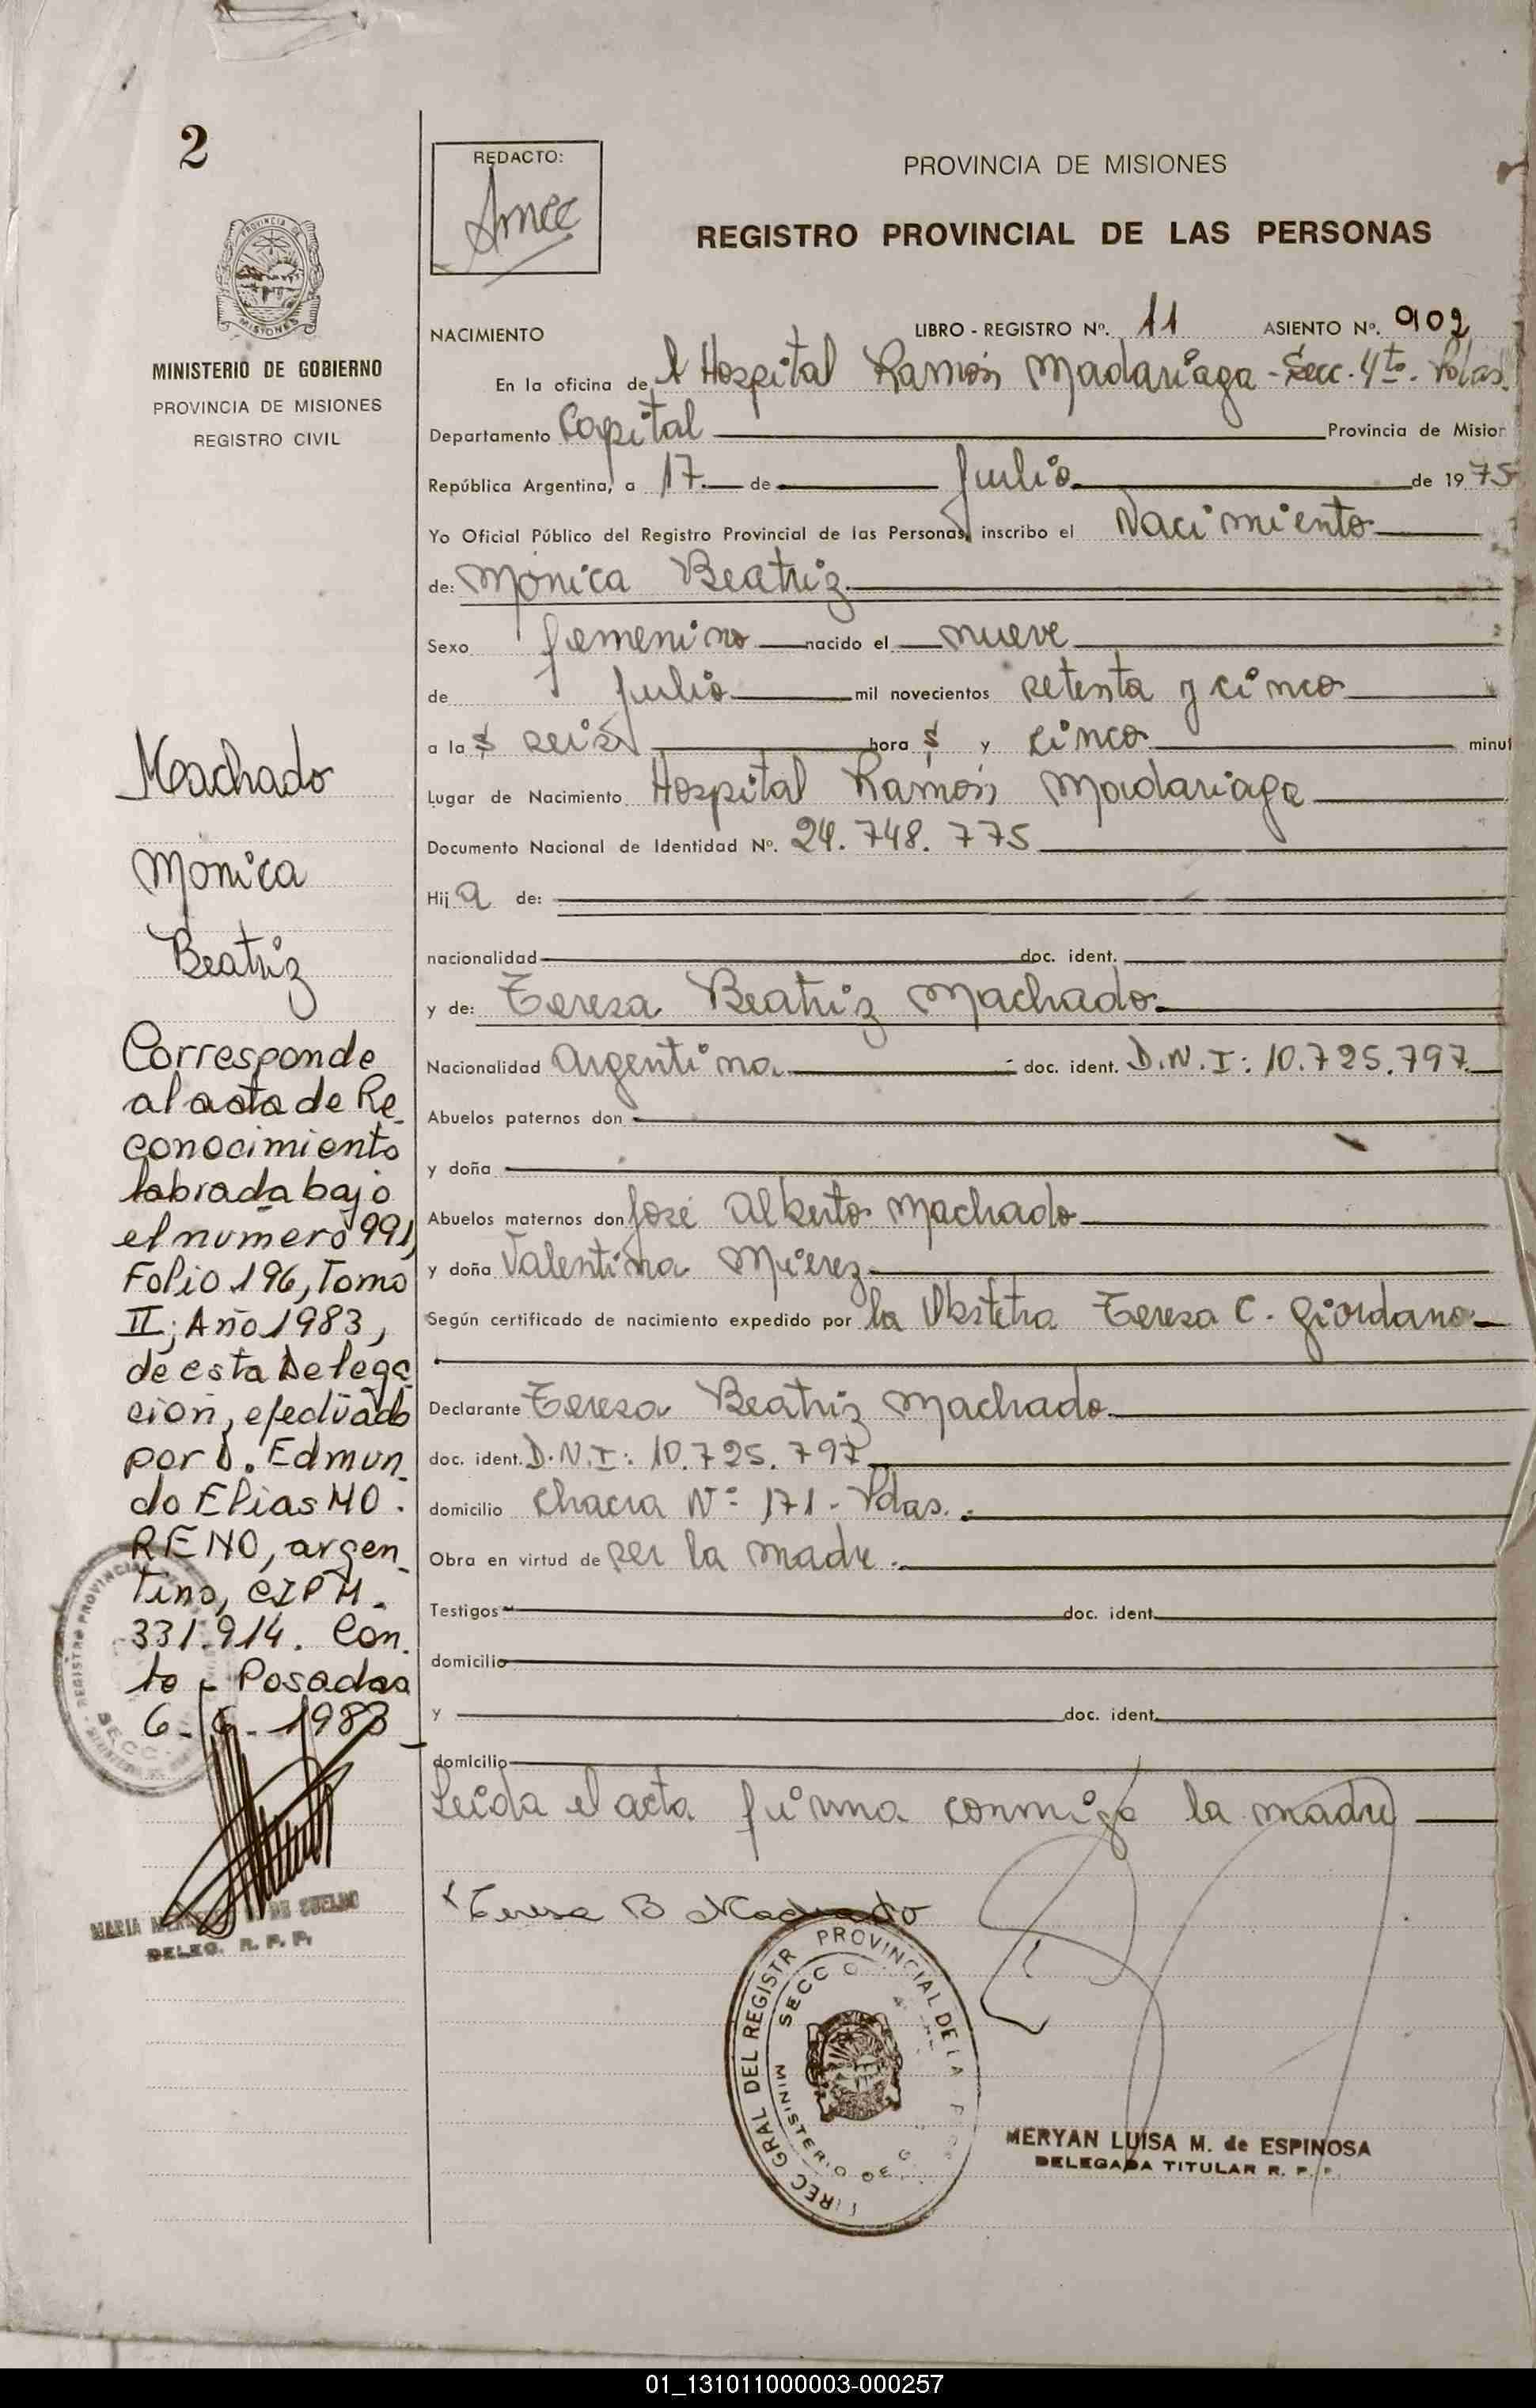 2
PROVINCIA DE
MISIONES
MINISTERIO DE GOBIERNO
PROVINCIA DE MISIONES
REGISTRO CIVIL
REDACTO:
PROVINCIA DE MISIONES
REGISTRO PROVINCIAL DE LAS PERSONAS
NACIMIENTO LIBRO - REGISTRO Nº. 11 ASIENTO Nº. 902
En la oficina del Hospital Ramón Madariaga - Secc. 4ta. Pdas.
Departamento Capital Provincia de Mision
República Argentina, a 17 de Julio de 1975
Yo Oficial Público del Registro Provincial de las Personas, inscribo el Nacimiento
de: Mónica Beatriz
Sexo femenino nacido el nueve
de Julio mil novecientos setenta y cinco
a las seis horas y cinco minut
Lugar de Nacimiento Hospital Ramón Madariaga
Documento Nacional de Identidad Nº. 24.748.775
Hija de:
nacionalidad doc. ident.
y de: Teresa Beatriz Machado
Nacionalidad Argentina doc. ident. D.N.I: 10.725.797
Abuelos paternos don
y doña
Abuelos maternos don José Alberto Machado
y doña Valentina Mierez
Según certificado de nacimiento expedido por la Obstetra Teresa C. Giordano
Declarante Teresa Beatriz Machado
doc. ident. D.N.I: 10.725.797
domicilio Chacra Nº 171 - Pdas.
Obra en virtud de ser la madre.
Testigos doc. ident.
domicilio
y doc. ident.
domicilio
Leida el acta firma conmigo la madre
x Teresa B Machado
Machado
Monica
Beatriz
Corresponde
al acta de Re-
conocimiento
labrada bajo
el numero 991,
Folio 196, Tomo
II, Año 1983,
de esta Delega
ción, efectuado
por D. Edmun-
do Elias MO-
RENO, argen-
tino, CIPM.
331.914. Con-
te - Posadas
6- - 1983
MARIA DE CUELHO
DELEG. R. P. P.
REGISTRO PROVINCIAL
SECC
DIREC GRAL DEL REGISTR PROVINCIAL DE LA
SECC
MINISTERIO DE G
MERYAN LUISA M. de ESPINOSA
DELEGADA TITULAR R. P. P.
01_131011000003-000257